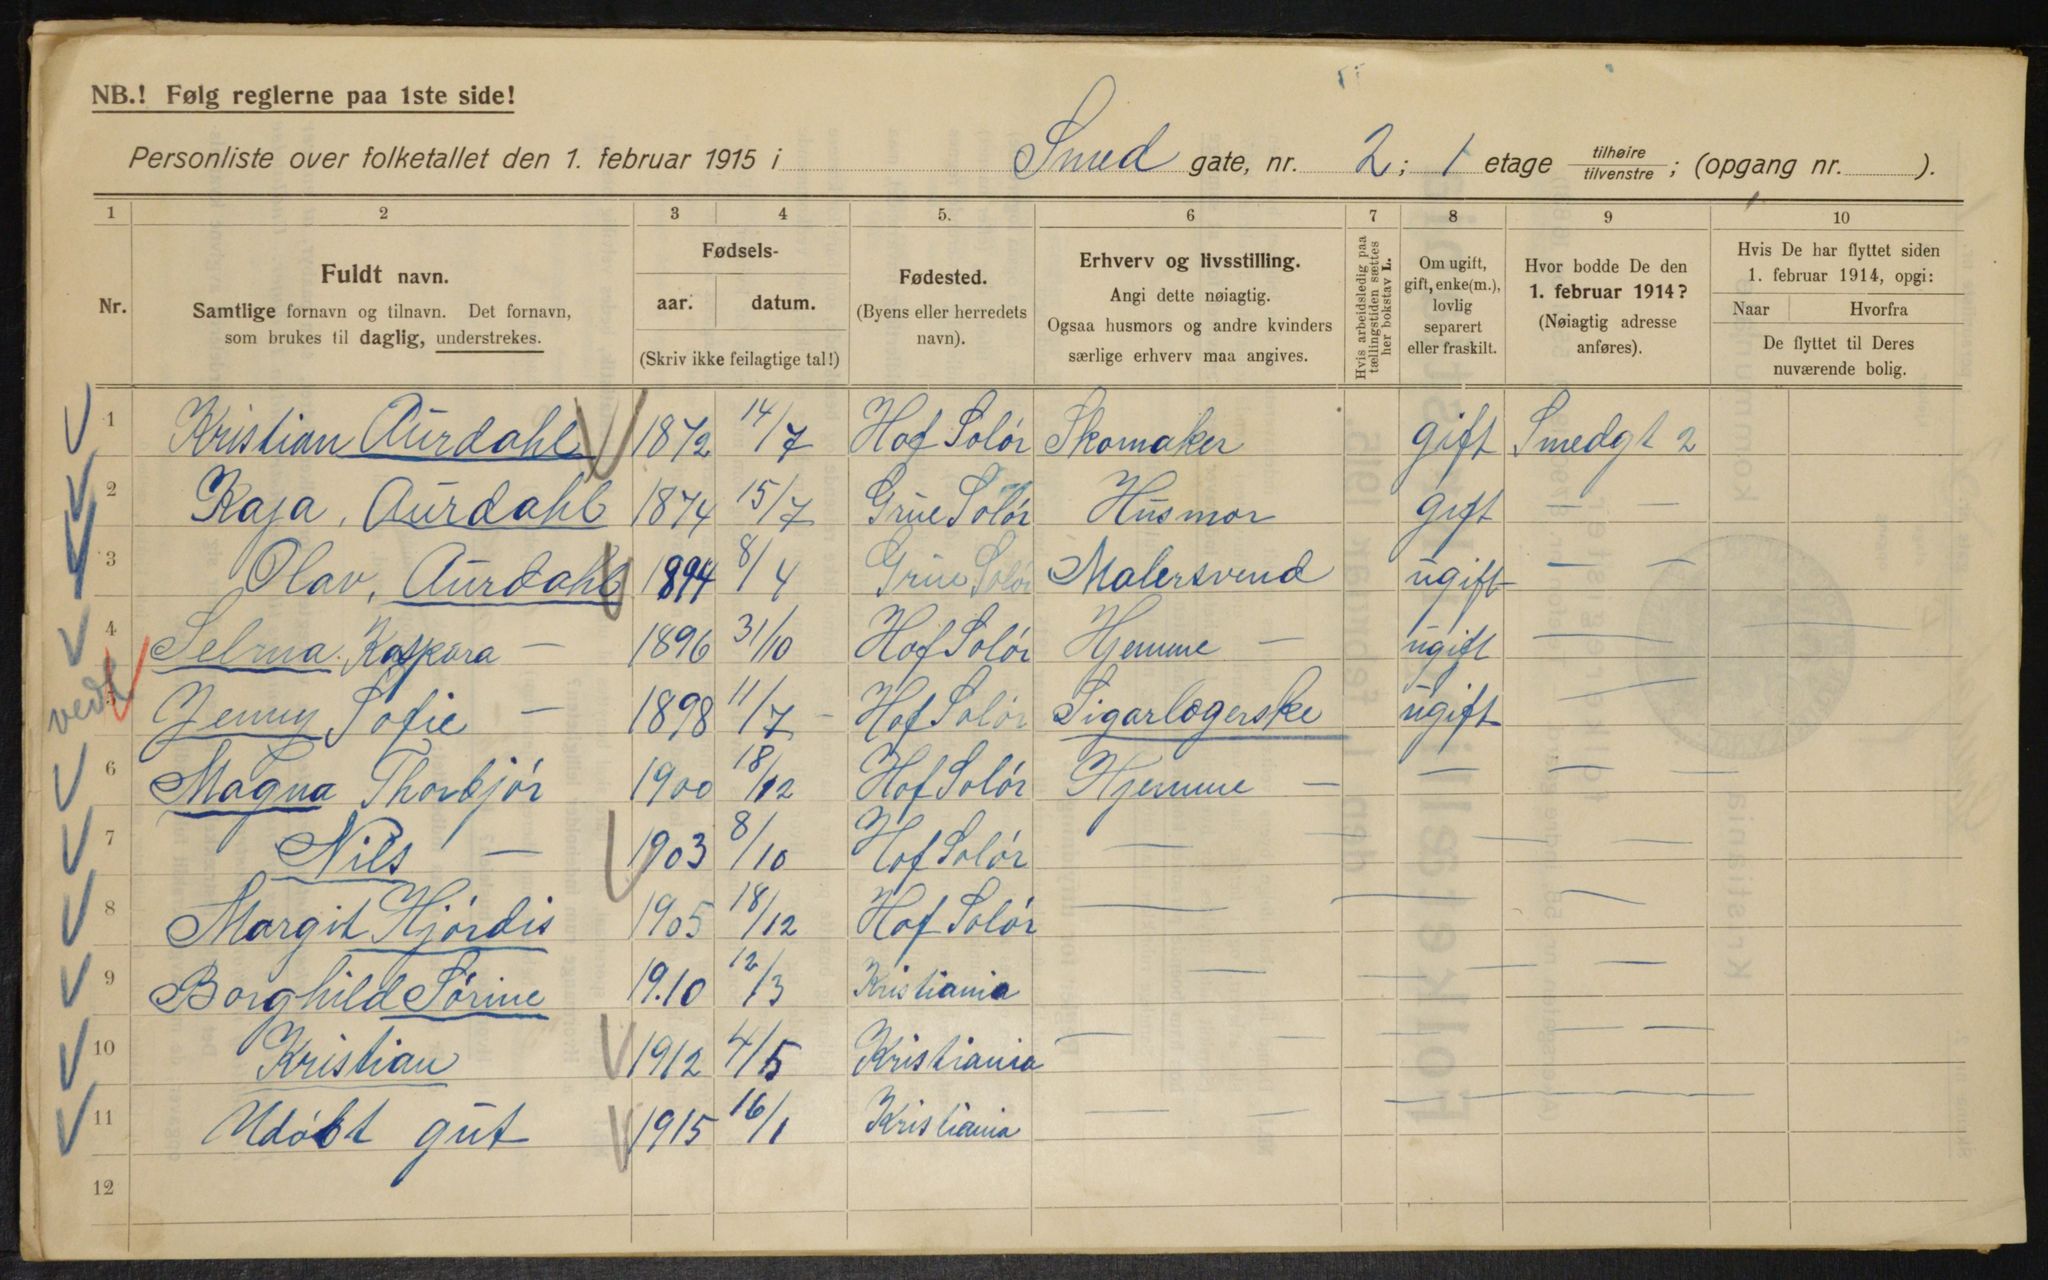 NB.! Følg reglerne paa 1ste side!
Personliste over folketallet den 1. februar 1915 i Smed gate, nr. 2; 1 etage tilhøire/tilvenstre; (opgang nr. ).
1 2 3 4 5. 6 7 8 9 10
Nr.
Fuldt navn.
Samtlige fornavn og tilnavn. Det fornavn,
som brukes til daglig, understrekes.
Fødsels-
aar. datum.
(Skriv ikke feilagtige tal!)
Fødested.
(Byens eller herredets
navn).
Erhverv og livsstilling.
Angi dette nøiagtig.
Ogsaa husmors og andre kvinders
særlige erhverv maa angives.
Hvis arbeidsledig paa
tællingstiden sættes
her bokstav L.
Om ugift,
gift, enke(m.),
lovlig
separert
eller fraskilt.
Hvor bodde De den
1. februar 1914?
(Nøiagtig adresse
anføres).
Hvis De har flyttet siden
1. februar 1914, opgi:
Naar Hvorfra
De flyttet til Deres
nuværende bolig.
1 Kristian Aurdahl 1872 14/7 Hof Solør Skomaker gift Smedgt 2
2 Kaja, Aurdahl 1874 15/7 Grue Solør Husmor gift — —
3 Olav, Aurdahl 1894 8/4 Grue Solør Malersvend ugift — —
4 Selma Kaspara — 1896 31/10 Hof Solør Hjemme — ugift — —
vedl 5 Jenny Sofie — 1898 11/7 — Hof Solør Sigarlogerske ugift —
6 Magna Thorbjør 1900 18/12 Hof Solør Hjemme — — — —
7 Nils — 1903 8/10 Hof Solør — — — — —
8 Margit Hjørdis 1905 18/12 Hof Solør — — — —
9 Borghild Sørine 1910 12/3 Kristiania — — — — —
10 Kristian 1912 4/5 Kristiania — — — — —
11 Udøbt gut 1915 16/1 Kristiania — — — —
12